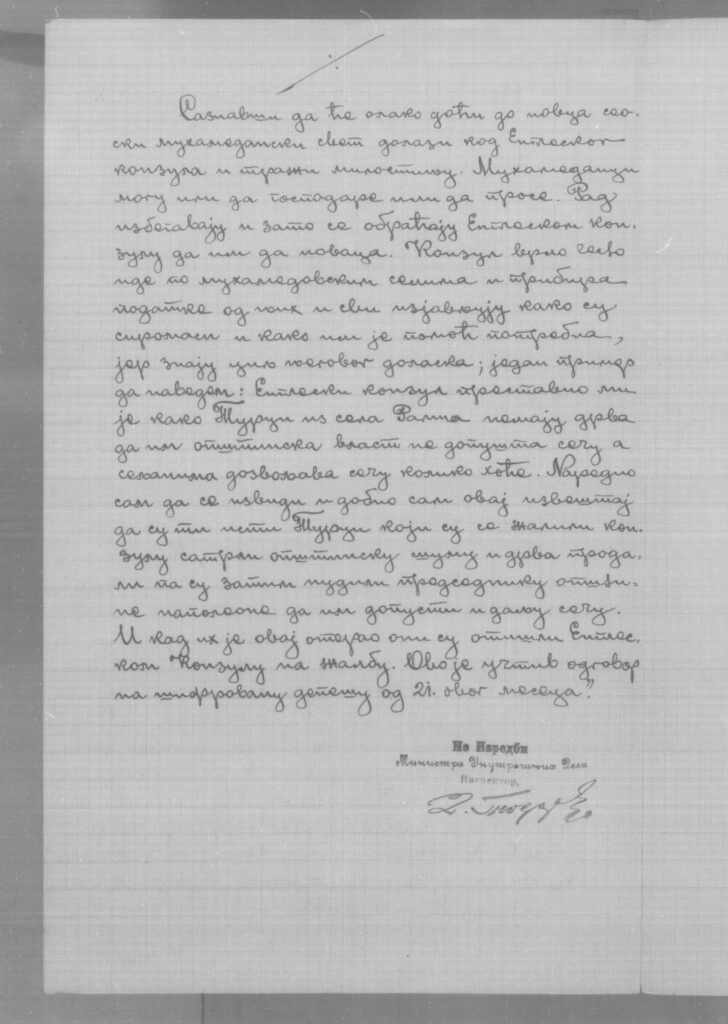 Сазнавши да ће олако доћи до новца сео-
ски мухамедански свет долази код Енглеског
конзула и тражи милостињу. Мухамеданци
могу или да господаре или да просе. Рад
избегавају и зато се обраћају Енглеском кон-
зулу да им да новаца. Конзул врло често
иде по мухамедовским селима и прибира
податке од њих и сви изјављују како су
сиромаси и како им је помоћ потребна,
јер знају циљ његовог доласка; један пример
да наведем: Енглески конзул преставио ми
је како Турци из села немају дрва
да им општинска власт не допушта сечу а
сељанима дозвољава сечу колико хоће. Наредио
сам да се извиди и добио сам овај извештај
да су ти исти Турци који су се жалили кон-
зулу сатрли општинску шуму и дрва прода-
ли па су затим нудили председнику општи-
не наполеоне да им допусти и даљу сечу.
И кад их је овај отерао они су отишли Енглес-
ком Конзулу на жалбу. Ово је учтив одговор
на шифровану депешу од 21. овог месеца."
По Наредби
Министра Унутрашњих Дела
Инспектор,